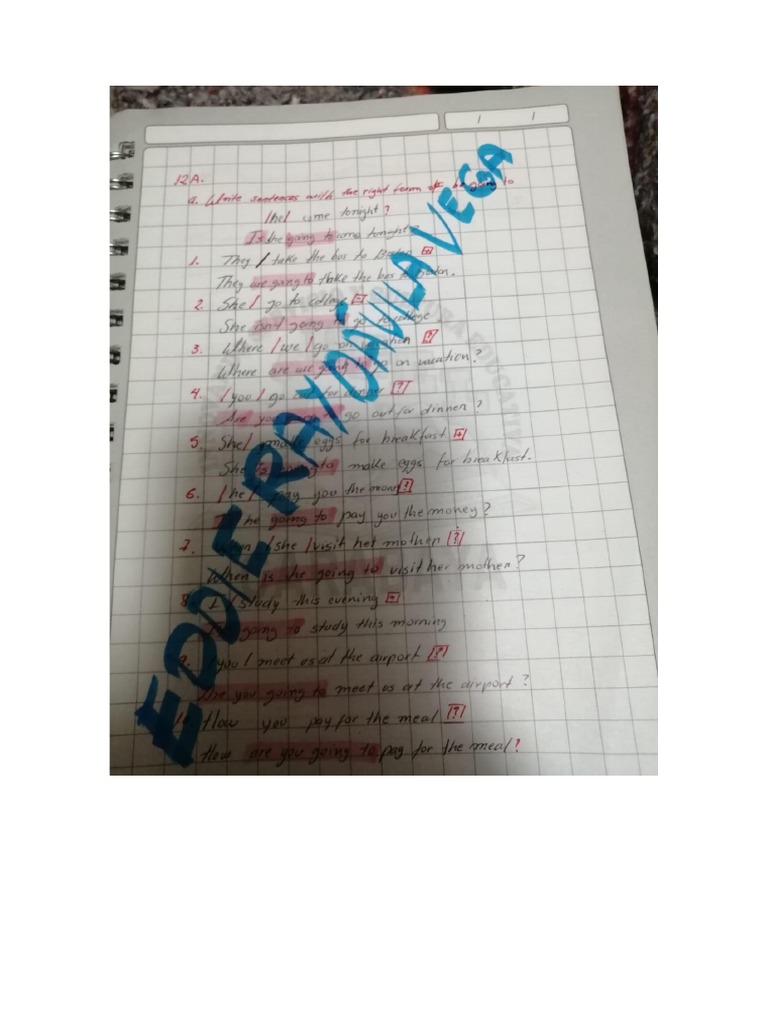 12A.
a. Write sentences with the right form of be going to
/he/ come tonight?
Is he going to come tonight
1. They / take the bus to Boston [+]
They are going to thake the bus to Boston.
2. She / go to college [-]
She isn't going to go to college
3. Where / we / go on vacation [?]
Where are we going to go on vacation?
4. / you / go out for dinner [?]
Are you going to go out for dinner?
5. She / make eggs for breakfast [+]
She is going to make eggs for breakfast.
6. / he / pay you the money [?]
Is he going to pay you the money?
7. When / she / visit her mother [?]
When is she going to visit her mother?
8. I / study this evening
going to study this morning
9. / you / meet us at the airport [?]
Are you going to meet us at the airport?
10. How you pay for the meal [?]
How are you going to pay for the meal?
EDDIE RAY DÁVILA VEGA